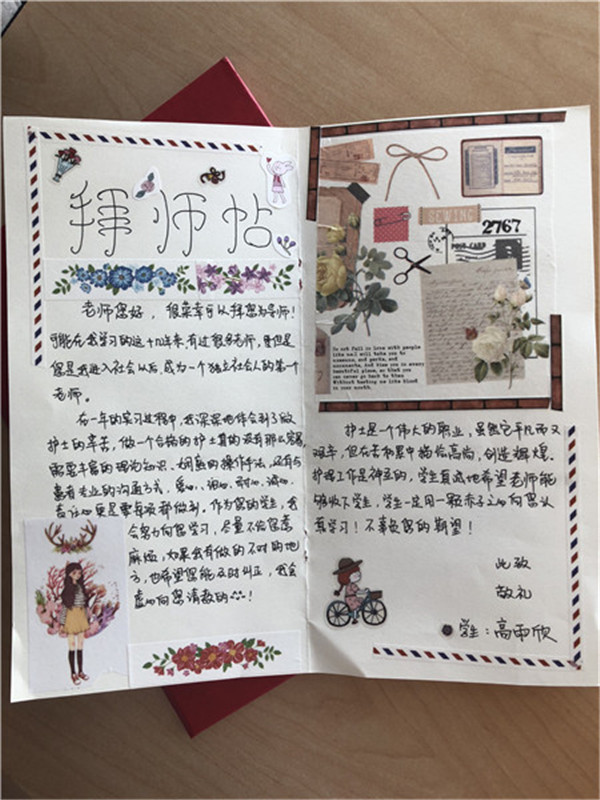 拜师帖
老师您好，很荣幸可以拜您为导师！
可能在我学习的这十几年来，有过很多老师，但是
您是我进入社会以后，成为一个独立社会人的第一个
老师。
在一年的实习过程中，我深深地体会到了做
护士的辛苦，做一个合格的护士真的没有那么容易，
需要丰富的理论知识、娴熟的操作手法，还有与
患者专业的沟通方式，爱心、细心、耐心、诚心、
责任心更是要每项都做到。作为您的学生，我
会努力向您学习，尽量不给您惹
麻烦，如果我有做的不对的地
方，也希望您能及时纠正，我会
虚心向您请教的！
SEWING
2767
POST CARD
Do not fall in love with people
like me. I will take you to
museums, and parks, and
monuments, and kiss you in every
beautiful place, so that you
can never go back to them
Without tasting me like blood
in your mouth.
护士是个伟大的职业，虽然它平凡而又
艰辛，但在苦和累中描绘高尚，创造辉煌。
护理工作是神圣的，学生真诚地希望老师能
够收下学生，学生一定用一颗赤子之心向您认
真学习！不辜负您的期望！
此致
敬礼
学生：高雨欣